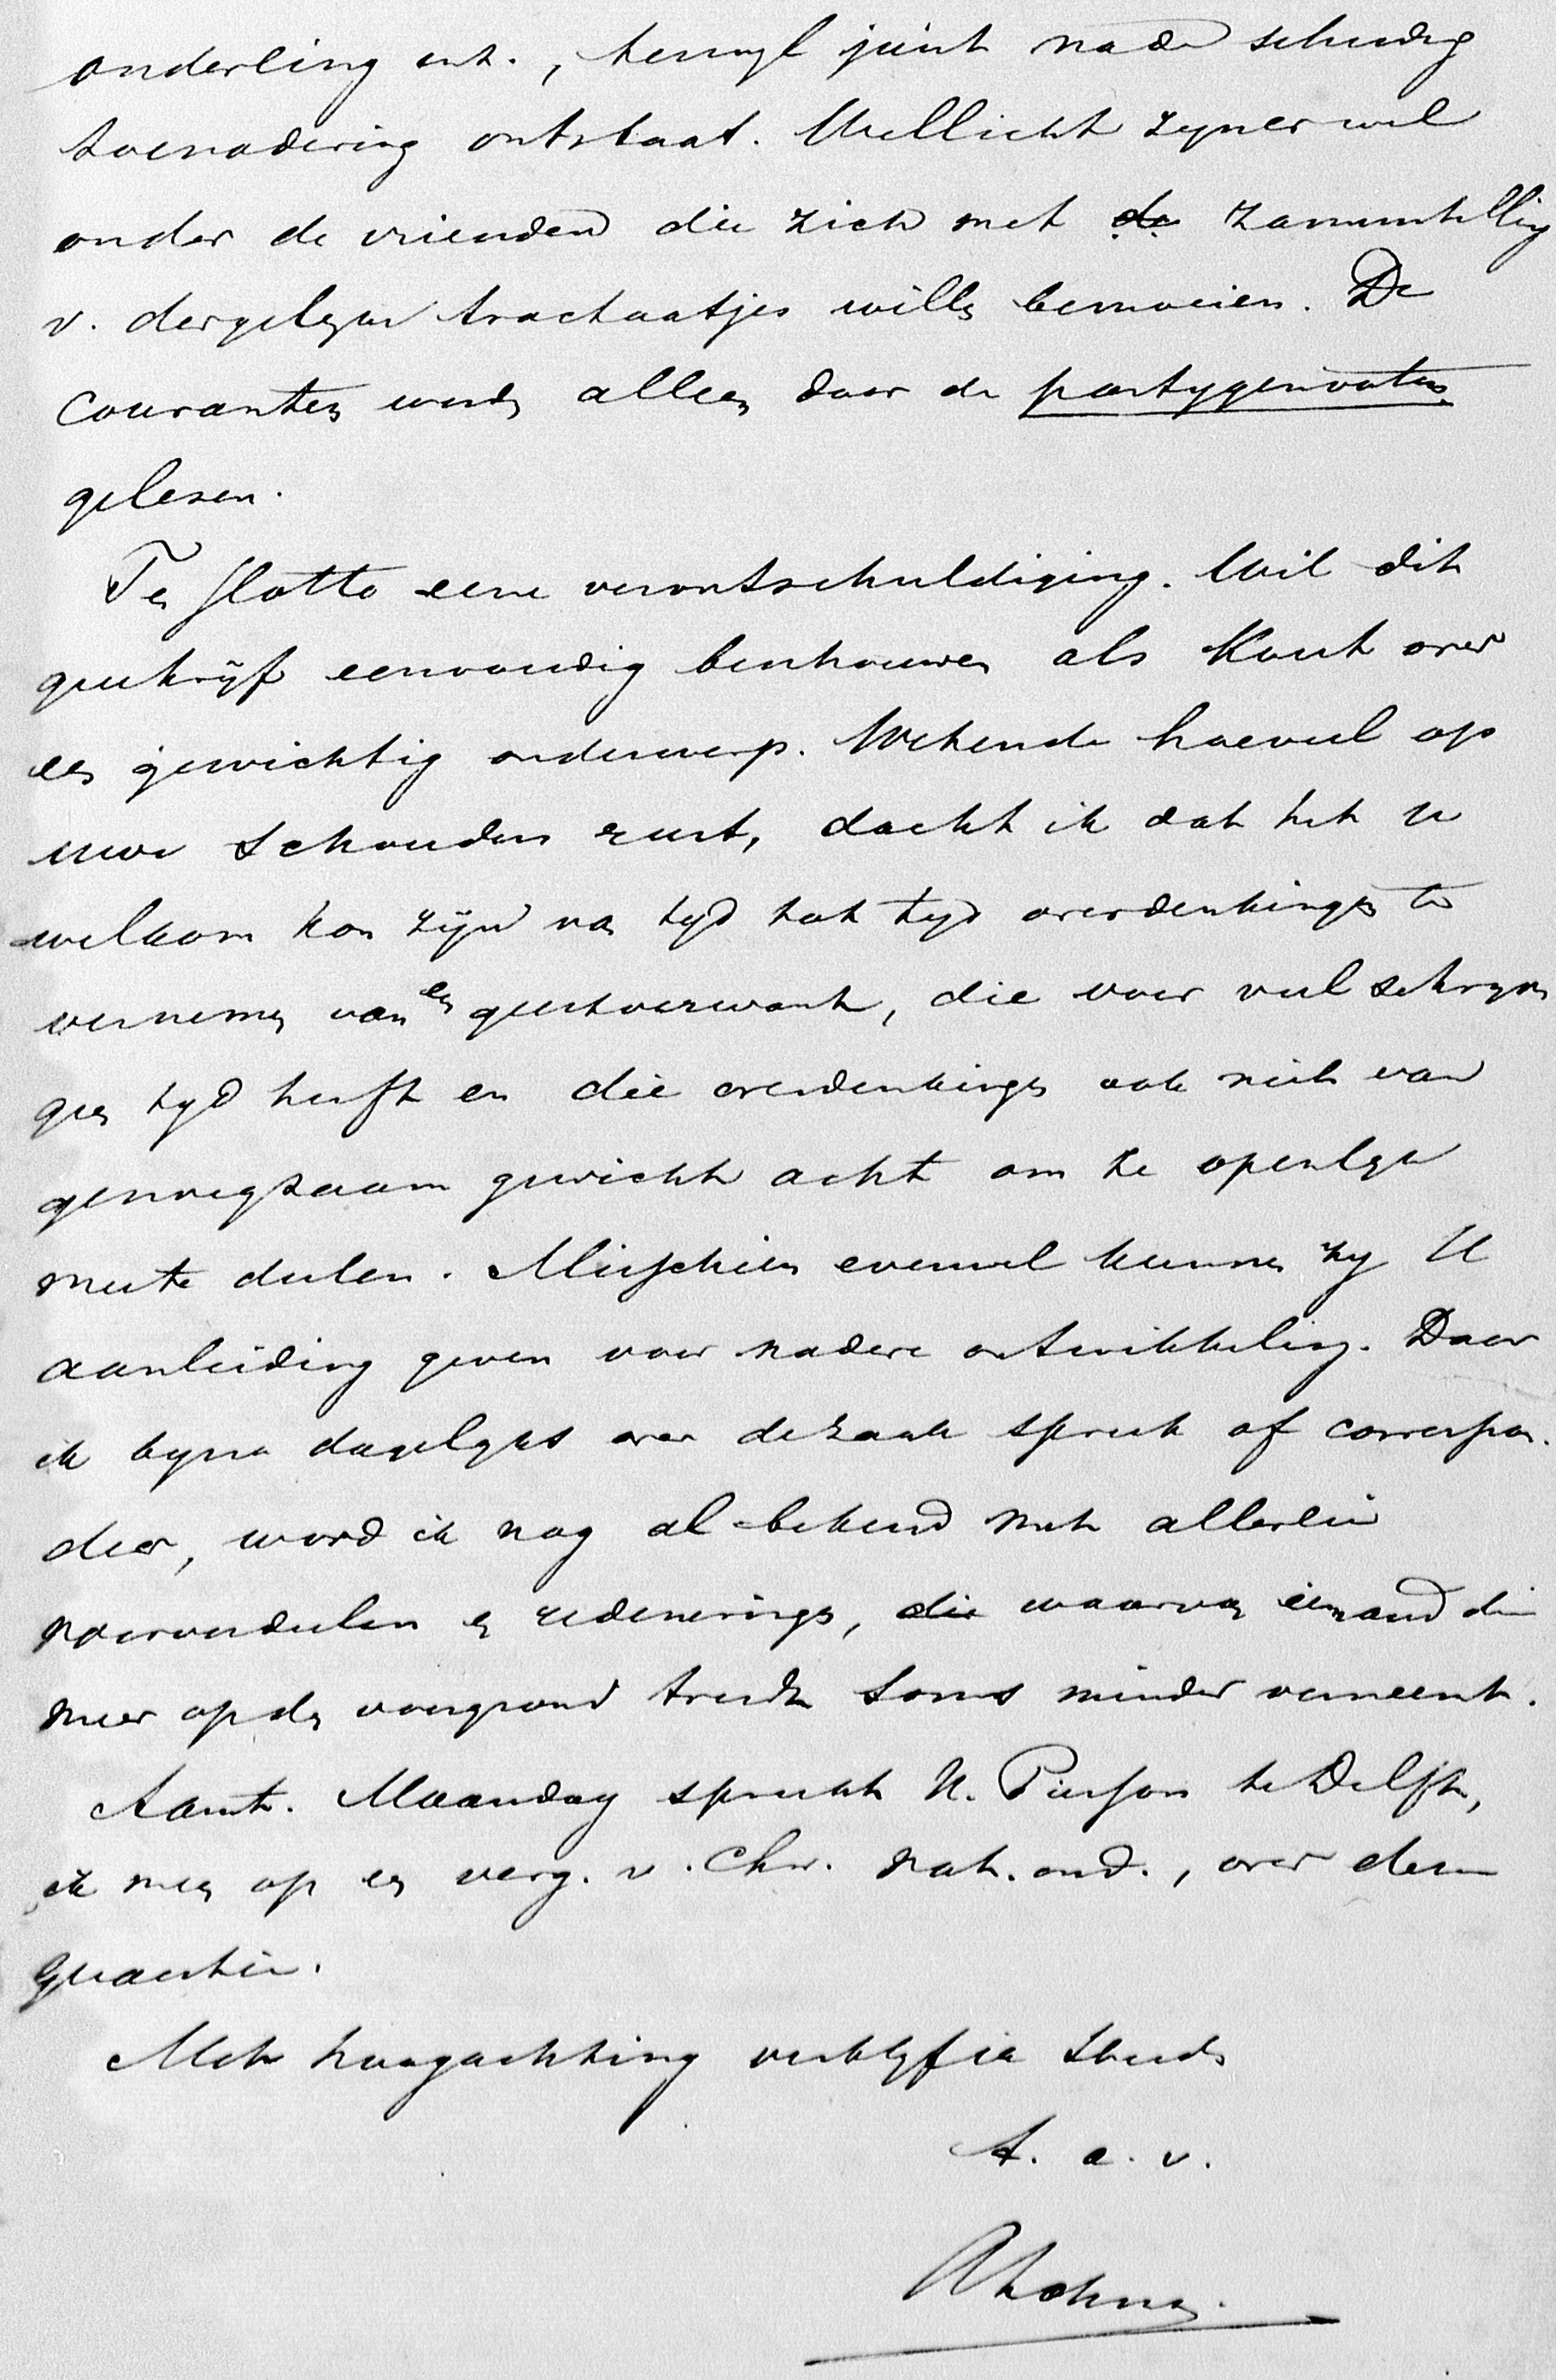 onderling ent., terwyl juist nader schudg
toenadering ontstaat. Wellicht zyn er wel
onder de vrienden die zich met de zamenstelling
v. dergelyke tractaatjes willen bemoeien. De
Couranten worden alleen door de partygenooten
gelesen.
Ten slotte eene verontschuldiging. Wil dit
geschrijf eenvoudig beschouwen als Kout over
een gewichtig onderwerp. Wetende hoeveel op
uwe schouders rust, dacht ik dat het U
welkom kon zijn van tyd tot tyd overdenkingen te
vernemen van een geestverwant, die voor veel schryven
geen tyd heeft en die overdenkingen ook niet van
genoegzaam gewicht acht om ze openlyk
mee te deelen. Misschien evenwel kunnen zy U
aanleiding geven voor nadere ontwikkeling. Daar
ik byna dagelyks over de zaak spreek of correspon-
deer, word ik nog al bekend met allerlei
vooroordeelen en redeneringen, die waarvan iemand die
meer op den voorgrond treedt soms minder verneemt.
Aanst. Maandag spreekt N. Pierson te Delft,
ik meen op een verg. v. Chr. nat. ond., over deze
quaestie.
Met hoogachting verblyf ik steeds
t. a. v.